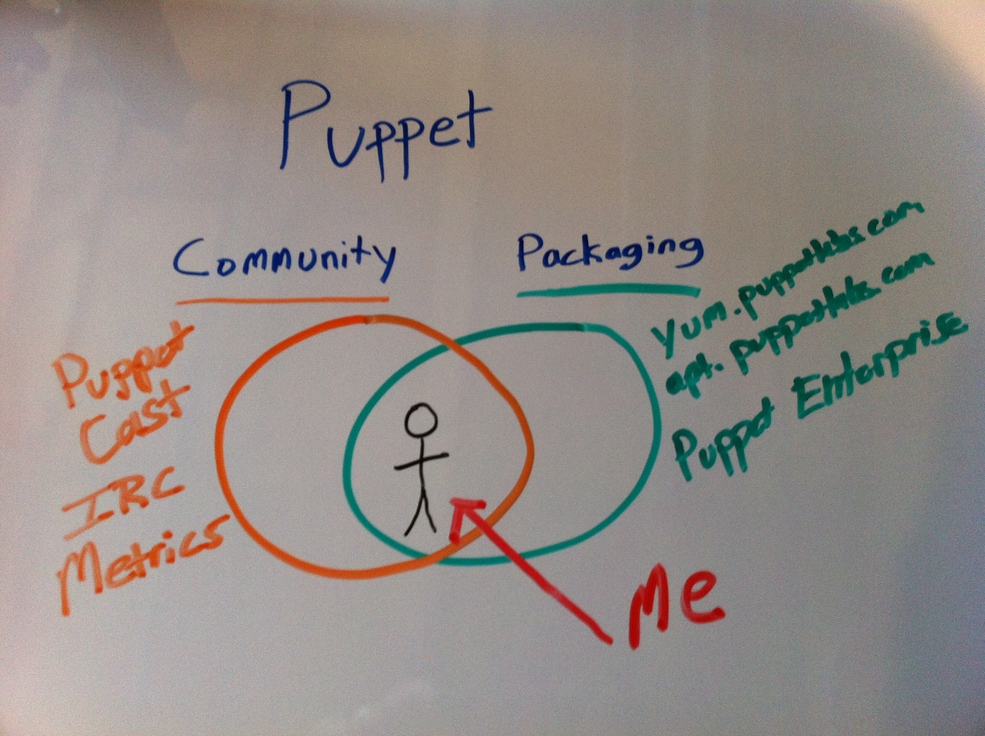 Puppet
Community
Packaging
Puppet
Cast
IRC
Metrics
yum.puppetlabs.com
apt.puppetlabs.com
Puppet Enterprise
Me